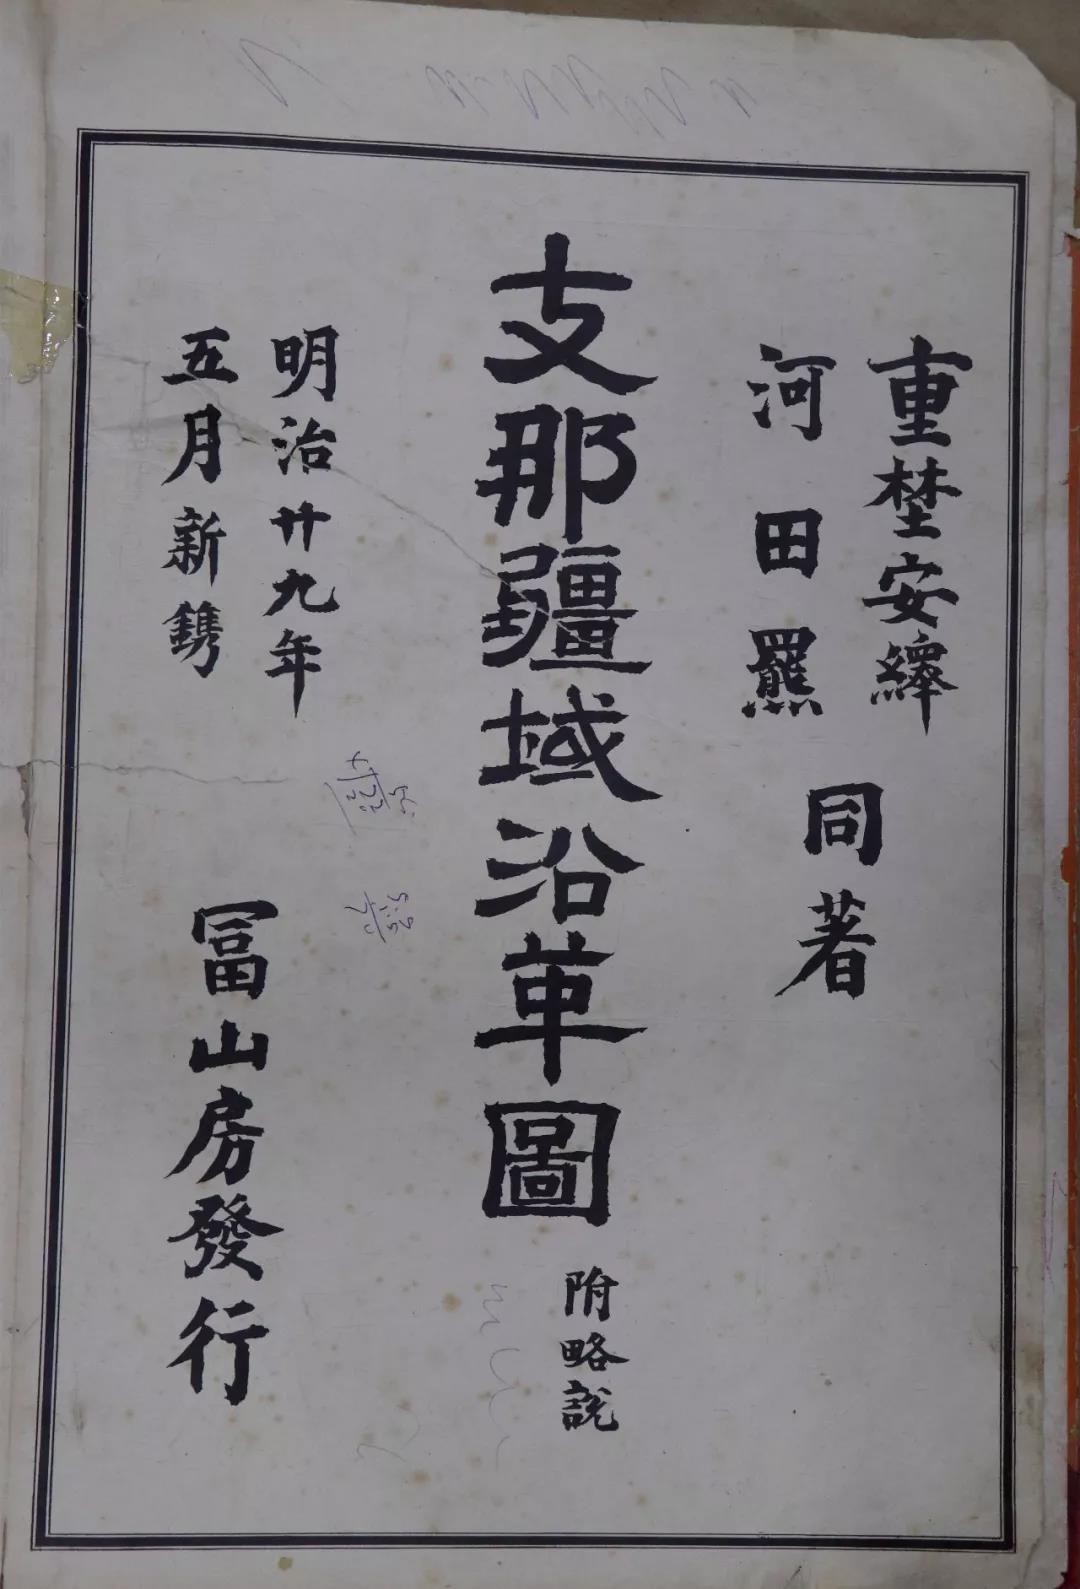 重埜安繹
河田羆
同著
支那疆域沿革圖
附略說
明治廿九年
五月新鐫
冨山房發行